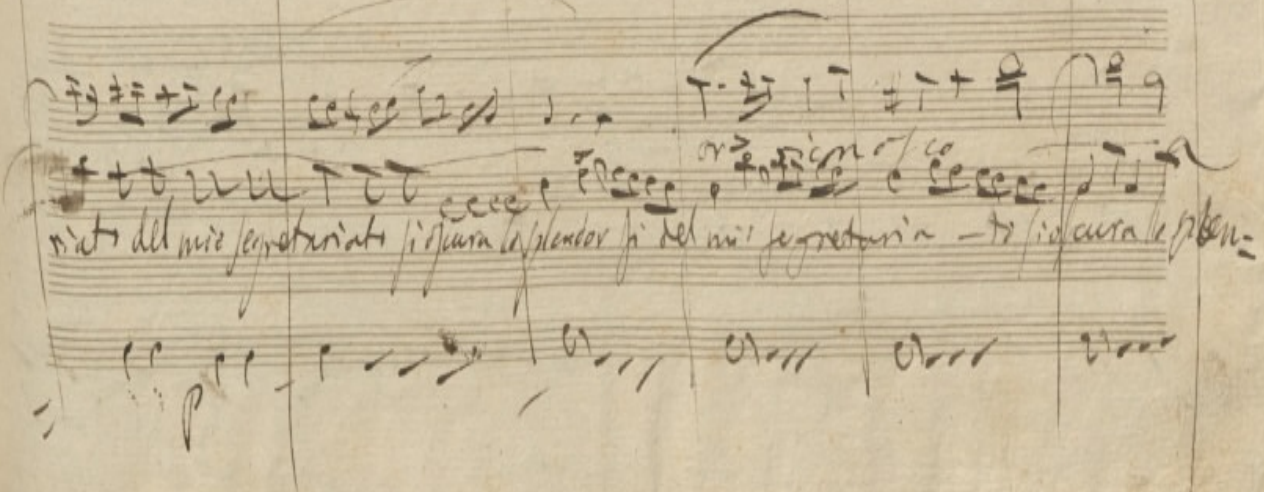 riato del mio segretariato si oscura lo splendor si del mio segretaria - to si oscura lo splen=
p